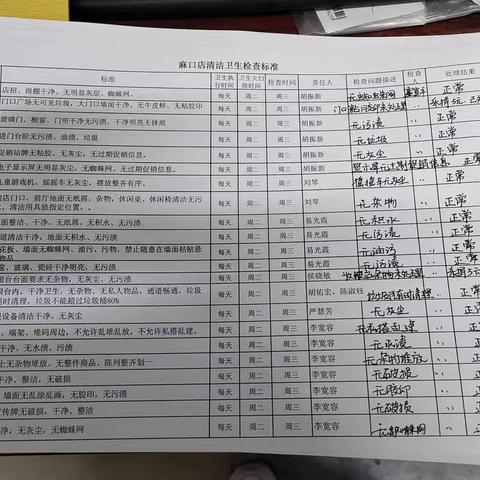 麻口店清洁卫生检查标准
标准 卫生执行时间 卫生大扫除时间 检查时间 责任人 检查问题描述 检查人 处理结果
店招、雨棚干净、无明显灰层、蜘蛛网。 每天 周二 周三 胡振新 正常
门口广场无可见垃圾，大门口墙面干净、无牛皮鲜、无粘胶印 每天 周二 周三 胡振新
玻璃门、橱窗、门帘干净无污渍，干净明亮无抹痕 每天 周二 周三 胡振新 无污渍 正常
进门台阶无污渍、油渍、垃圾 每天 周二 周三 胡振新 无垃圾 正常
促销站牌无粘胶、无灰尘，无过期促销信息。 每天 周二 周三 胡振新 无灰尘 正常
电子显示屏无明显灰尘、无蜘蛛网、无过期促销信息。 每天 周二 周三 胡振新 正常
儿童游戏机、摇摇车无灰尘，摆放整齐有序。 每天 周二 周三 刘琴 摇摇车无灰尘 正常
门店门口、前厅地面无纸屑、杂物，休闲桌、休闲椅清洁无污渍，清洁用具放指定位置。 每天 周二 周三 刘琴 无杂物 正常
面整洁、干净，无纸屑、无积水、无污渍 每天 周二 周三 易光霞 无积水 正常
道清洁干净、地面无积水、无污渍 每天 周二 周三 易光霞 无污渍 正常
花板、墙面无蜘蛛网、油污、污物，禁止随意在墙面粘贴悬物品 每天 周二 周三 易光霞 无油污 正常
窗、玻璃、瓷砖干净明亮，无污渍 每天 周二 周三 易光霞 无污渍 正常
银台台面要求无杂物，无灰尘、无污渍 每天 周二 周三 侯晓敏
银台内，干净卫生，无杂物、无私人物品，通道畅通，垃圾及时清理，垃圾不能超过垃圾桶80% 每天 周二 周三 胡佑宏、陈淑钰 垃圾及时清理 正常
设备清洁干净、无灰尘 每天 周二 周三 严慧芳 无灰尘 正常
、端架、堆码周边，不允许乱堆乱放，不允许私搭乱建。 每天 周二 周三 李宽容 正常
干净、无水渍、污渍 每天 周二 周三 李宽容 无水渍 正常
上无杂物堆放、无整件商品、陈列整齐划一 每天 周二 周三 李宽容 无杂物堆放 正常
干净、整洁、无破损 每天 周二 周三 李宽容 无破损 正常
、墙面无乱涂乱画，无胶印，无污渍 每天 周二 周三 李宽容 无胶印 正常
宣传牌无破损、干净、整洁 每天 周二 周三 李宽容 无破损 正常
净，无灰尘，无蜘蛛网 每天 周二 周三 李宽容 蜘蛛网 正常